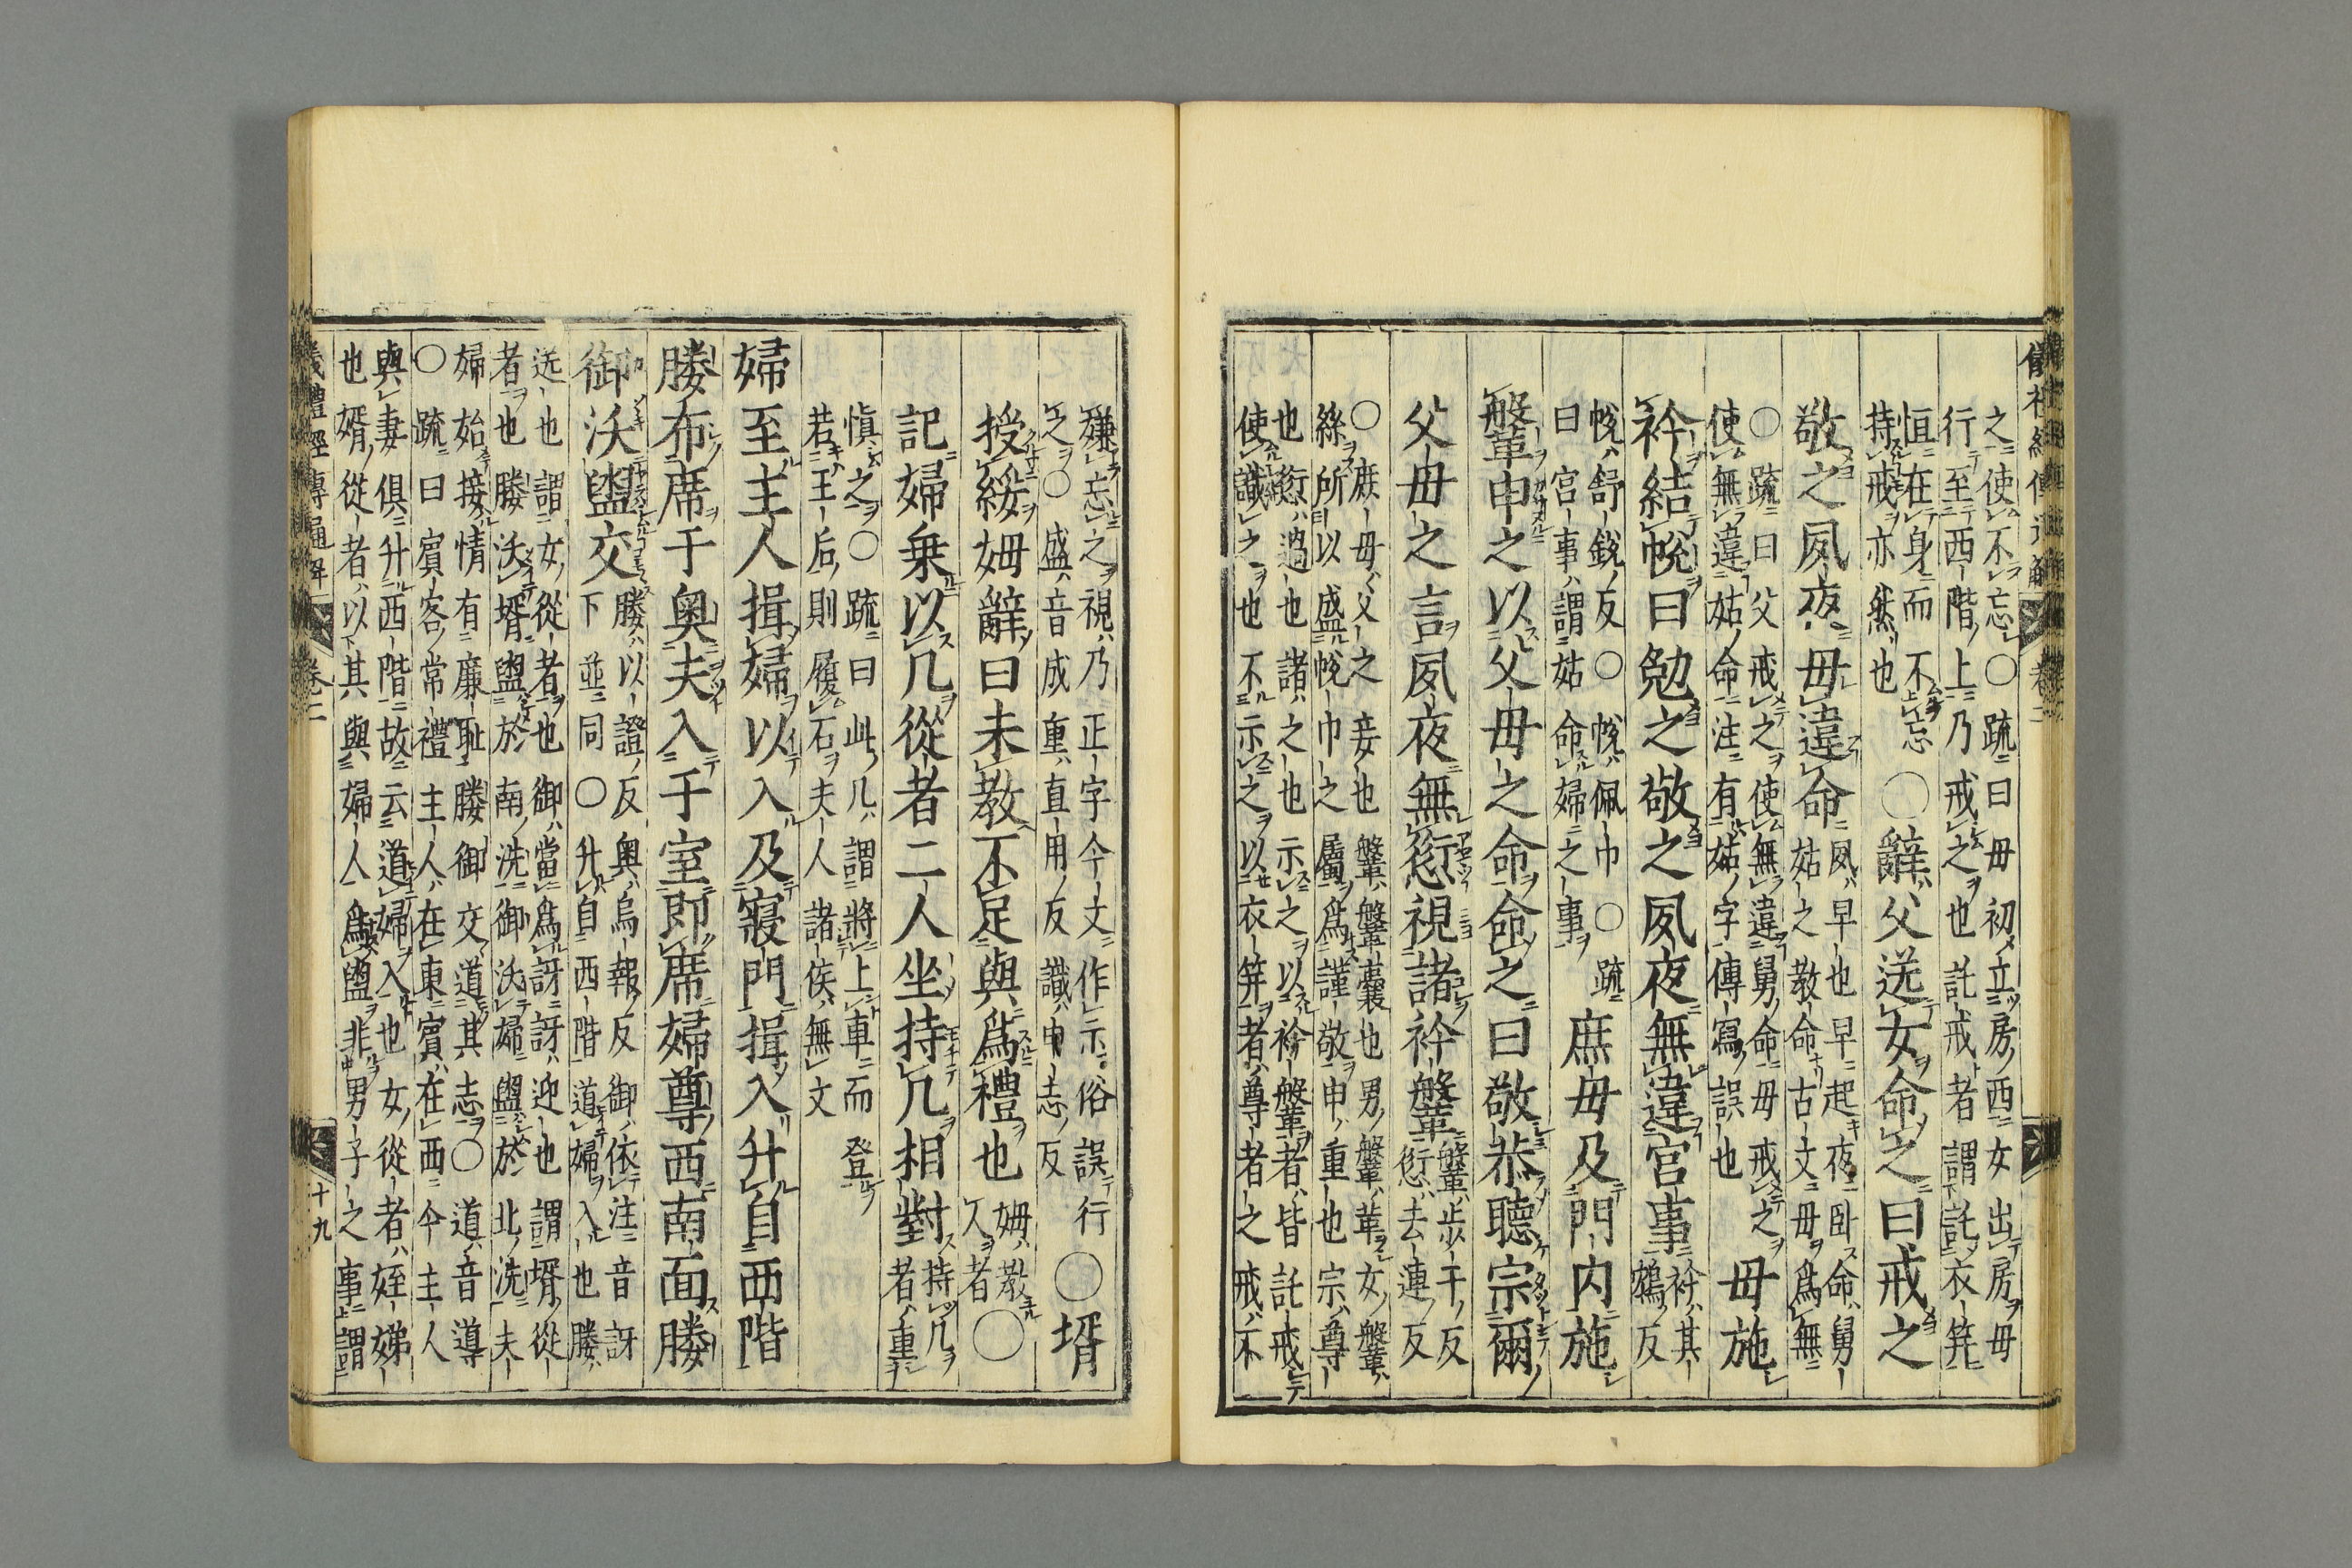 之使不忘○疏曰毋初立房西女出房毋
行至西階上乃戒之也託戒者謂託衣笄
恒在身而不忘
持戒亦然也
○辭父送女命之曰戒之
敬之夙夜毋違命
夙早也早起夜卧命舅
姑之教命古文毋爲無
○疏曰父戒之使無違舅命毋戒之
使無違姑命注有姑字傳寫誤也
毋施
衿結帨曰勉之敬之夙夜無違宮事
衿其
鴆反
帨舒銳反○帨佩巾○疏
曰宮事謂姑命婦之事
庶毋及門内施
鞶申之以父毋之命命之曰敬恭聽宗爾
父毋之言夙夜無愆視諸衿鞶
鞶步干反
愆去連反
○庶毋父之妾也鞶鞶囊也男鞶革女鞶
絲所以盛帨巾之屬爲謹敬申重也宗尊
也愆過也諸之也示之以衿鞶者皆託戒
使識之也不示之以衣笄者尊者之戒不
嫌忘之視乃正字今文作示俗誤行
之○盛音成重直用反識申志反
○壻
授綏姆辭曰未教不足與爲禮也
姆教
人者
○
記婦乗以几從者二人坐持几相對
持几
者重
愼之○疏曰此几謂將上車而登
若王后則履石夫人諸侯無文
婦至主人揖婦以入及寢門揖入升自西階
媵布席于奥夫入于室即席婦尊西南面媵
御沃盥交
媵以證反奥烏報反御依注音訝
下並同○升自西階道婦入也媵
送也謂女從者也御當爲訝訝迎也謂壻從
者也媵沃壻盥於南洗御沃婦盥於北洗夫
婦始接情有廉耻媵御交道其志○道音導
○疏曰賓客常禮主人在東賓在西今主人
與妻俱升西階故云道婦入也女從者姪娣
也壻從者以其與婦人爲盥非男子之事謂
儀禮經傳通解 卷二 十九